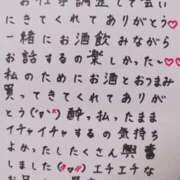 お仕事調整して会い
にきてくれてありがとう♡
一緒にお酒飲みながら
お話するの楽しかった~♡
私のためにお酒とおつまみ
買ってきてくれてありが
とう(˘ω˘) 酔っ払ったまま
イチャイチャするの気持ち
よかったしたくさん興奮
しました(♥ω♥) エチエチな